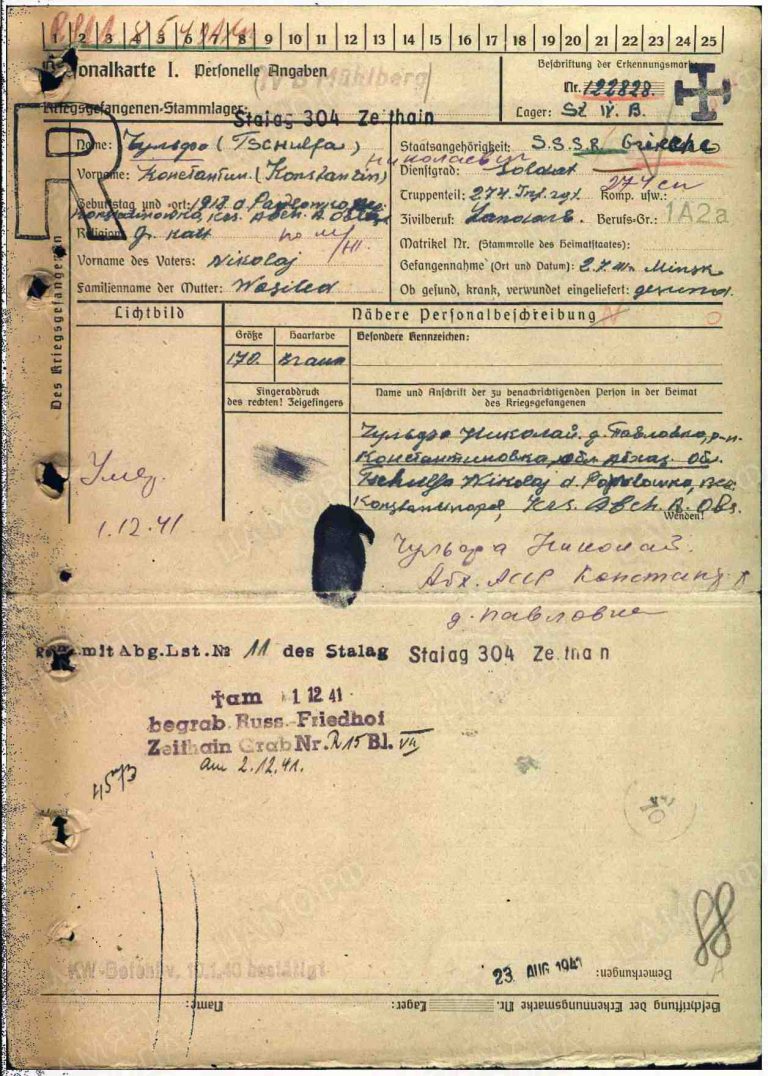 1 2 3 4 5 6 7 8 9 10 11 12 13 14 15 16 17 18 19 20 21 22 23 24 25
Personalkarte I. Personelle Angaben
IV B Mühlberg
Beschriftung der Erkennungsmarke
Nr. 122828.
Kriegsgefangenen-Stammlager: Stalag 304 Zeithain
Lager: St. IV. B.
R
Des Kriegsgefangenen
Name: Чульфа (Tschulfa)
Vorname: Константин (Konstantin) Николаевич
Geburtstag und -ort: 1918 d.
Religion: Gr. kath
Vorname des Vaters: Nikolaj
Familienname der Mutter:
Staatsangehörigkeit: S.S.S.R. Grieche
Dienstgrad: Soldat
Truppenteil: 274 Inf. rgt. Komp. usw.: 274 сп
Zivilberuf: Landarb. Berufs-Gr.: 1A2a
Matrikel Nr. (Stammrolle des Heimatstaates):
Gefangennahme (Ort und Datum): 2.7.41 Minsk
Ob gesund, krank, verwundet eingeliefert: gesund.
Lichtbild
Nähere Personalbeschreibung
Größe Haarfarbe Besondere Kennzeichen:
170. Braun
Fingerabdruck
des rechten! Zeigefingers
Name und Anschrift der zu benachrichtigenden Person in der Heimat
des Kriegsgefangenen
Чульфа Николай. д. Павловка, р-н.
Константиновка, обл.
Tschulfa Nikolaj d.
Abch. A. Obl.
Wenden!
Умер.
1.12.41
Чульфа Николай.
Абх. АССР Констант
д. Павловка
mit Abg.Lst.№ 11 des Stalag Stalag 304 Zeithain
† am 1 12 41
begrab. Russ.-Friedhof
Zeithain Grab Nr. R 15 Bl. VII
am 2.12.41.
88
KW-Befehl v. 10.1.40 bestätigt
23. AUG 1941
Bemerkungen:
Beschriftung der Erkennungsmarke Nr.
Lager:
Name: